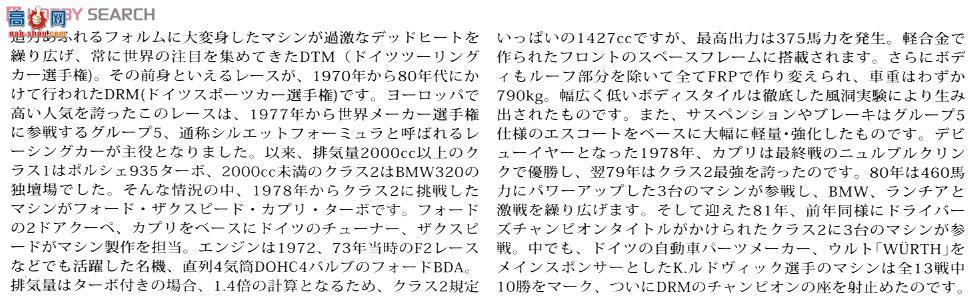 HOBBY SEARCH
高工网
迫力あふれるフォルムに大変身したマシンが過激なデッドヒートを
繰り広げ、常に世界の注目を集めてきたDTM（ドイツツーリング
カー選手権)。その前身といえるレースが、1970年から80年代にか
けて行われたDRM(ドイツスポーツカー選手権)です。ヨーロッパで
高い人気を誇ったこのレースは、1977年から世界メーカー選手権
に参戦するグループ5、通称シルエットフォーミュラと呼ばれるレ
ーシングカーが主役となりました。以来、排気量2000cc以上のク
ラス1はポルシェ935ターボ、2000cc未満のクラス2はBMW320の
独壇場でした。そんな情況の中、1978年からクラス2に挑戦した
マシンがフォード・ザクスピード・カプリ・ターボです。フォード
の2ドアクーペ、カプリをベースにドイツのチューナー、ザクスピ
ードがマシン製作を担当。エンジンは1972、73年当時のF2レース
などでも活躍した名機、直列4気筒DOHC4バルブのフォードBDA。
排気量はターボ付きの場合、1.4倍の計算となるため、クラス2規定
いっぱいの1427ccですが、最高出力は375馬力を発生。軽合金で
作られたフロントのスペースフレームに搭載されます。さらにボデ
ィもルーフ部分を除いて全てFRPで作り変えられ、車重はわずか
790kg。幅広く低いボディスタイルは徹底した風洞実験により生み
出されたものです。また、サスペンションやブレーキはグループ5
仕様のエスコートをベースに大幅に軽量･強化したものです。デビ
ューイヤーとなった1978年、カプリは最終戦のニュルブルクリン
クで優勝し、翌79年はクラス2最強を誇ったのです。80年は460馬
力にパワーアップした3台のマシンが参戦し、BMW、ランチアと
激戦を繰り広げます。そして迎えた81年、前年同様にドライバー
ズチャンピオンタイトルがかけられたクラス2に3台のマシンが参
戦。中でも、ドイツの自動車パーツメーカー、ウルト｢WÜRTH｣を
メインスポンサーとしたK.ルドヴィック選手のマシンは全13戦中
10勝をマーク、ついにDRMのチャンピオンの座を射止めたのです。